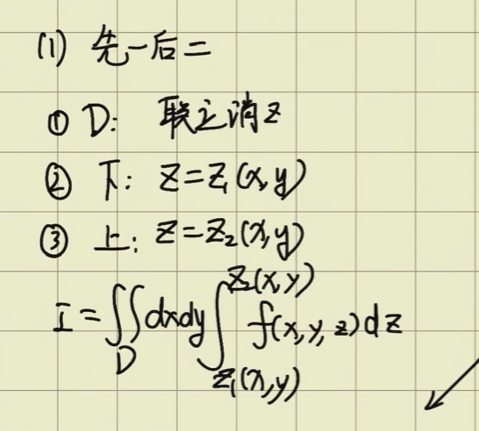 (1) 先一后二
① D: 联立消z
② 下: z=z₁(x,y)
③ 上: z=z₂(x,y)
I=∬_D dxdy∫_{z₁(x,y)}^{z₂(x,y)} f(x,y,z)dz